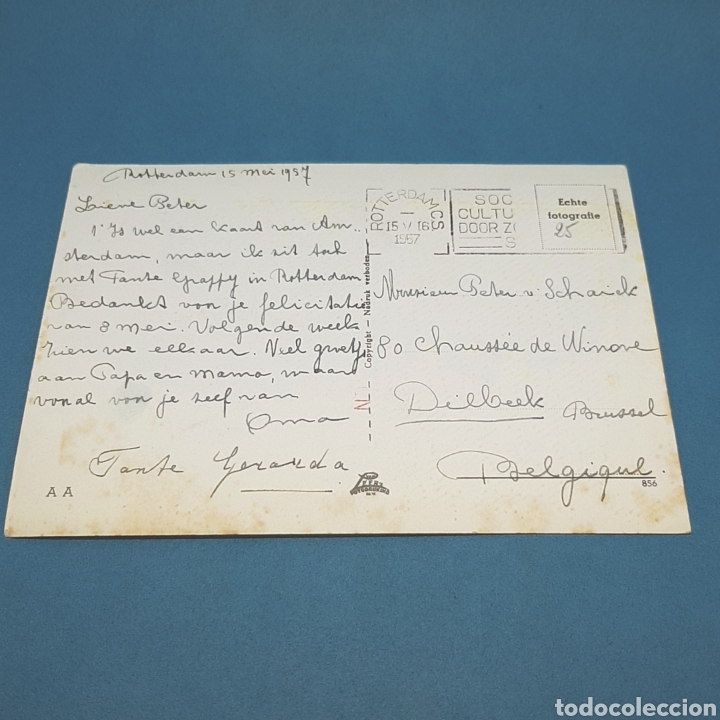 Rotterdam 15 mei 1957
Lieve Peter
't Is wel een kaart van Am-
sterdam, maar ik zit toch
met Tante Grappy in Rotterdam
Bedankt voor je felicitatie
van 8 mei. Volgende week
zien we elkaar. Veel groetj
aan Papa en Mama, maar
vooral voor je zelf van
Oma
Tante Gerarda
A A
Copyright - Nadruk verboden
ROTTERDAM CS
15 V 16
1957
SOC
CULTU
DOOR ZO
S
Echte
fotografie
25
Monsieur Peter v. Schaick
80 Chaussée de Ninove
Dilbeek Brussel
Belgique.
856
todocoleccion